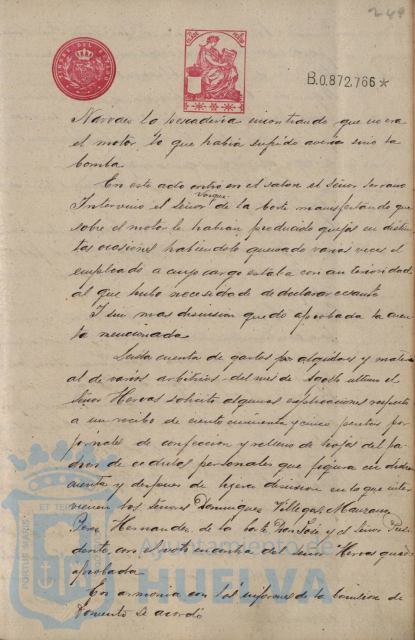 TIMBRE DEL ESTADO
249
B.0.872.766*
la pescaderia encontrando que no era
el motor lo que habia sufrido averia sino la
bomba.
En este acto entró en el salon el Señor Serrano
Intervino el Señor Vazquez de la Corte manifestando que
sobre el motor le habian producido quejas en distin
tas ocasiones habiendole quemado varias veces el
empleado a cuyo cargo estaba con anterioridad
al que hubo necesidad de declarar cesante
I sin mas discusion quedó aprobada la cuen
ta mencionada
cuenta de gastos por alquileres y materi
al de varios arbitrios del mes de Agosto ultimo el
Señor Hervas solicitó algunas explicaciones respecto
a un recibo de ciento cincuenta y cinco pesetas por
jornales de confeccion y relleno de hojas del pa
dron de cedulas personales que figura en dicha
cuenta y despues de ligera discusion en la que inter
vinieron los Señores Dominguez Villegas, Manzano,
Perez Hernandez, de la Corte Don José y el Señor Presi
dente, con el voto en contra del Señor Hervas quedó
aprobada
En armonia con los informes de la Comision de
Fomento se acordó
PORTUS MARIS
ET TER
Ayuntamiento de
HUELVA